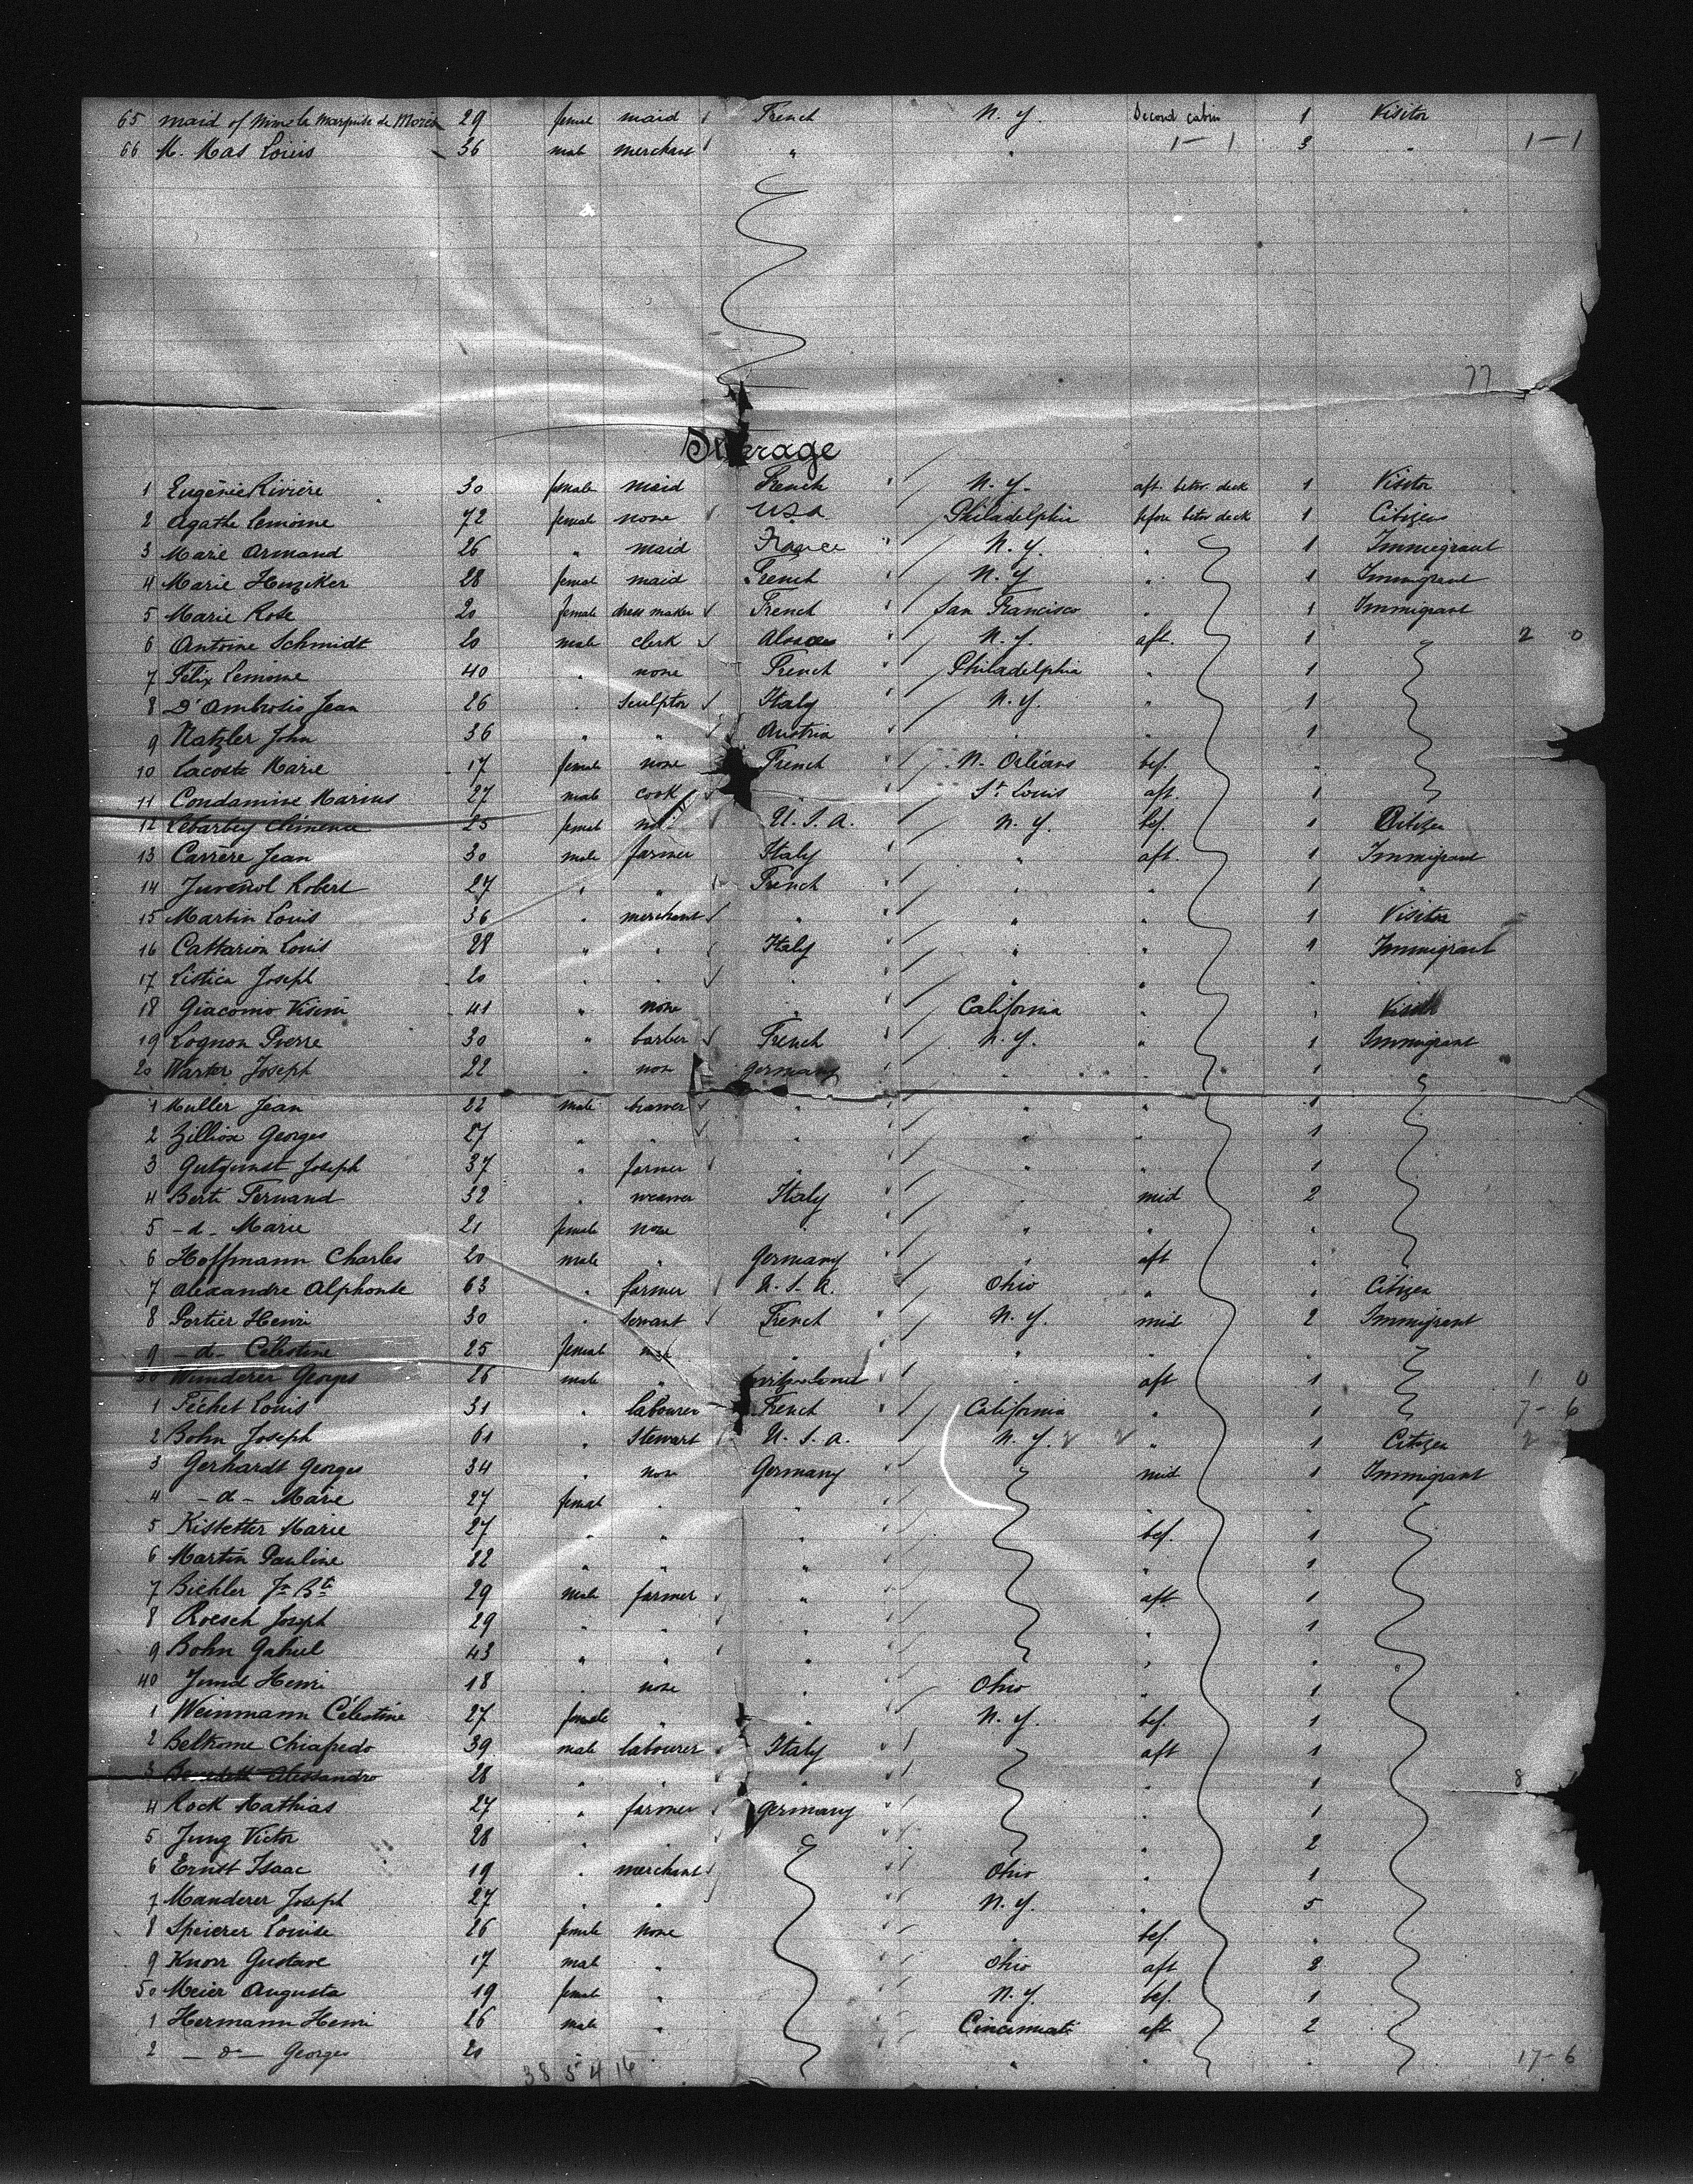 65 maid of Mme la Marquise de Morès 29 femal maid French N. Y. Second cabin 1 Visitor
66 M. Mas Louis 36 male merchant " " 1-1 3 " 1-1
77
Steerage
1 Eugénie Rivière 30 female maid French N. Y. aft. betw. deck 1 Visitor
2 Agathe Lemoine 72 female none USA Philadelphia before betw deck 1 Citizen
3 Marie Armand 26 " maid France N. Y. " 1 Immigrant
4 Marie Hunziker 28 femal maid French N. Y " 1 Immigrant
5 Marie Rose 20 female dress maker French San Francisco " 1 Immigrant
6 Antoine Schmidt 20 male clerk Alsace N. Y. aft. 1 2 0
7 Félix Lemoine 40 " none French Philadelphia " 1
8 D'Ambrosio Jean 26 " sculptor Italy N. Y. " 1
9 Natzler John 36 " " Austria " " 1
10 Lacoste Marie 17 female none French N. Orléans bef. "
11 Condamine Marius 27 male cook St. Louis aft. 1
12 Lebarbey Clémence 25 femal U. S. A. N. Y. bef. 1 Citizen
13 Carrère Jean 30 male farmer Italy " aft. 1 Immigrant
14 Juvenol Robert 27 " " French " " 1 "
15 Martin Louis 36 " merchant " " " 1 Visitor
16 Cattarion Louis 28 " " Italy " " 1 Immigrant
17 Listica Joseph 20 " " " " "
18 Giacomo Visini 41 " none " California " "
19 Lognon Pierre 30 " barber French N. Y. " 1 Immigrant
20 Warter Joseph 22 " non Germany " " 1
1 Muller Jean 22 male brawer " " " 1
2 Zilliox Georges 27 " " " " " 1
3 Gutzunst Joseph 37 " farmer " " " 1
4 Berti Fernand 32 " weawer Italy " mid 2
5 -d- Marie 21 female none " " " "
6 Hoffmann Charles 20 male " Germany " aft "
7 Alexandre Alphonse 63 " farmer U. S. A. Ohio " " Citizen
8 Portier Henri 30 " servant French N. Y. mid 2 Immigrant
9 -d- Célestine 25 femal " " "
30 Wunderer Georges 26 male " Switzerland " aft 1 1 0
1 Péchet Louis 31 " labourer French California " 1 7-6
2 Bohn Joseph 61 " Stewart U. S. A. N. Y. " 1 Citizen 2
3 Gerhardt Georges 34 " non Germany mid 1 Immigrant
4 -d- Marie 27 femal " " " "
5 Kistetter Marie 27 " " " bef. 1
6 Martin Pauline 22 " " " " 1
7 Bichler Jn Bte 29 male farmer " aft 1
8 Roesch Joseph 29 " " " " 1
9 Bohn Gabriel 43 " " " " "
40 Jund Henri 18 " none " Ohio " 1
1 Weinmann Célestine 27 female " " N. Y. bef. 1
2 Beltrome Chiafredo 39 male labourer Italy aft 1
3 Alessandro 28 " " " " 1
4 Rock Mathias 27 " farmer Germany " 1
5 Jung Victor 28 " " " 2
6 Ernst Isaac 19 " merchant Ohio " 1
7 Manderer Joseph 27 " " N. Y. " 5
8 Speierer Louise 26 female none " bef. "
9 Knorr Gustave 17 mal " Ohio aft 2
50 Meier Augusta 19 female " N. Y. bef. 1
1 Hermann Henri 26 male " Cincinnati aft 2
2 -d- Georges 20 " " " " 17-6
38 5 4 16